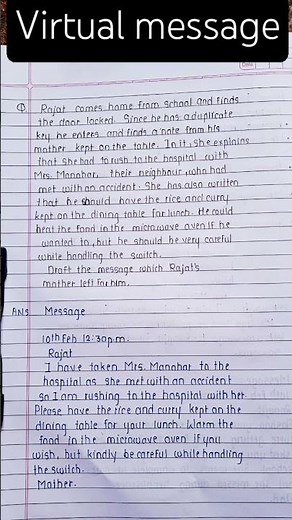 Virtual message
Date
① Rajat comes home from school and finds
the door locked. Since he has a duplicate
key he enters and finds a note from his
mother kept on the table. In it, she explains
that she had to rush to the hospital with
Mrs. Manohar, their neighbour, who had
met with an accident. She has also written
that he should have the rice and curry
kept on the dining table for lunch. He could
heat the food in the microwave oven if he
wanted to, but he should be very careful
while handling the switch.
Draft the message which Rajat's
mother left for him.
Ans Message
10th Feb 12:30p.m.
Rajat
I have taken Mrs. Manohar to the
hospital as she met with an accident
so I am rushing to the hospital with her.
Please have the rice and curry kept on the
dining table for your lunch. Warm the
food in the microwave oven if you
wish, but kindly be careful while handling
the switch.
Mother.